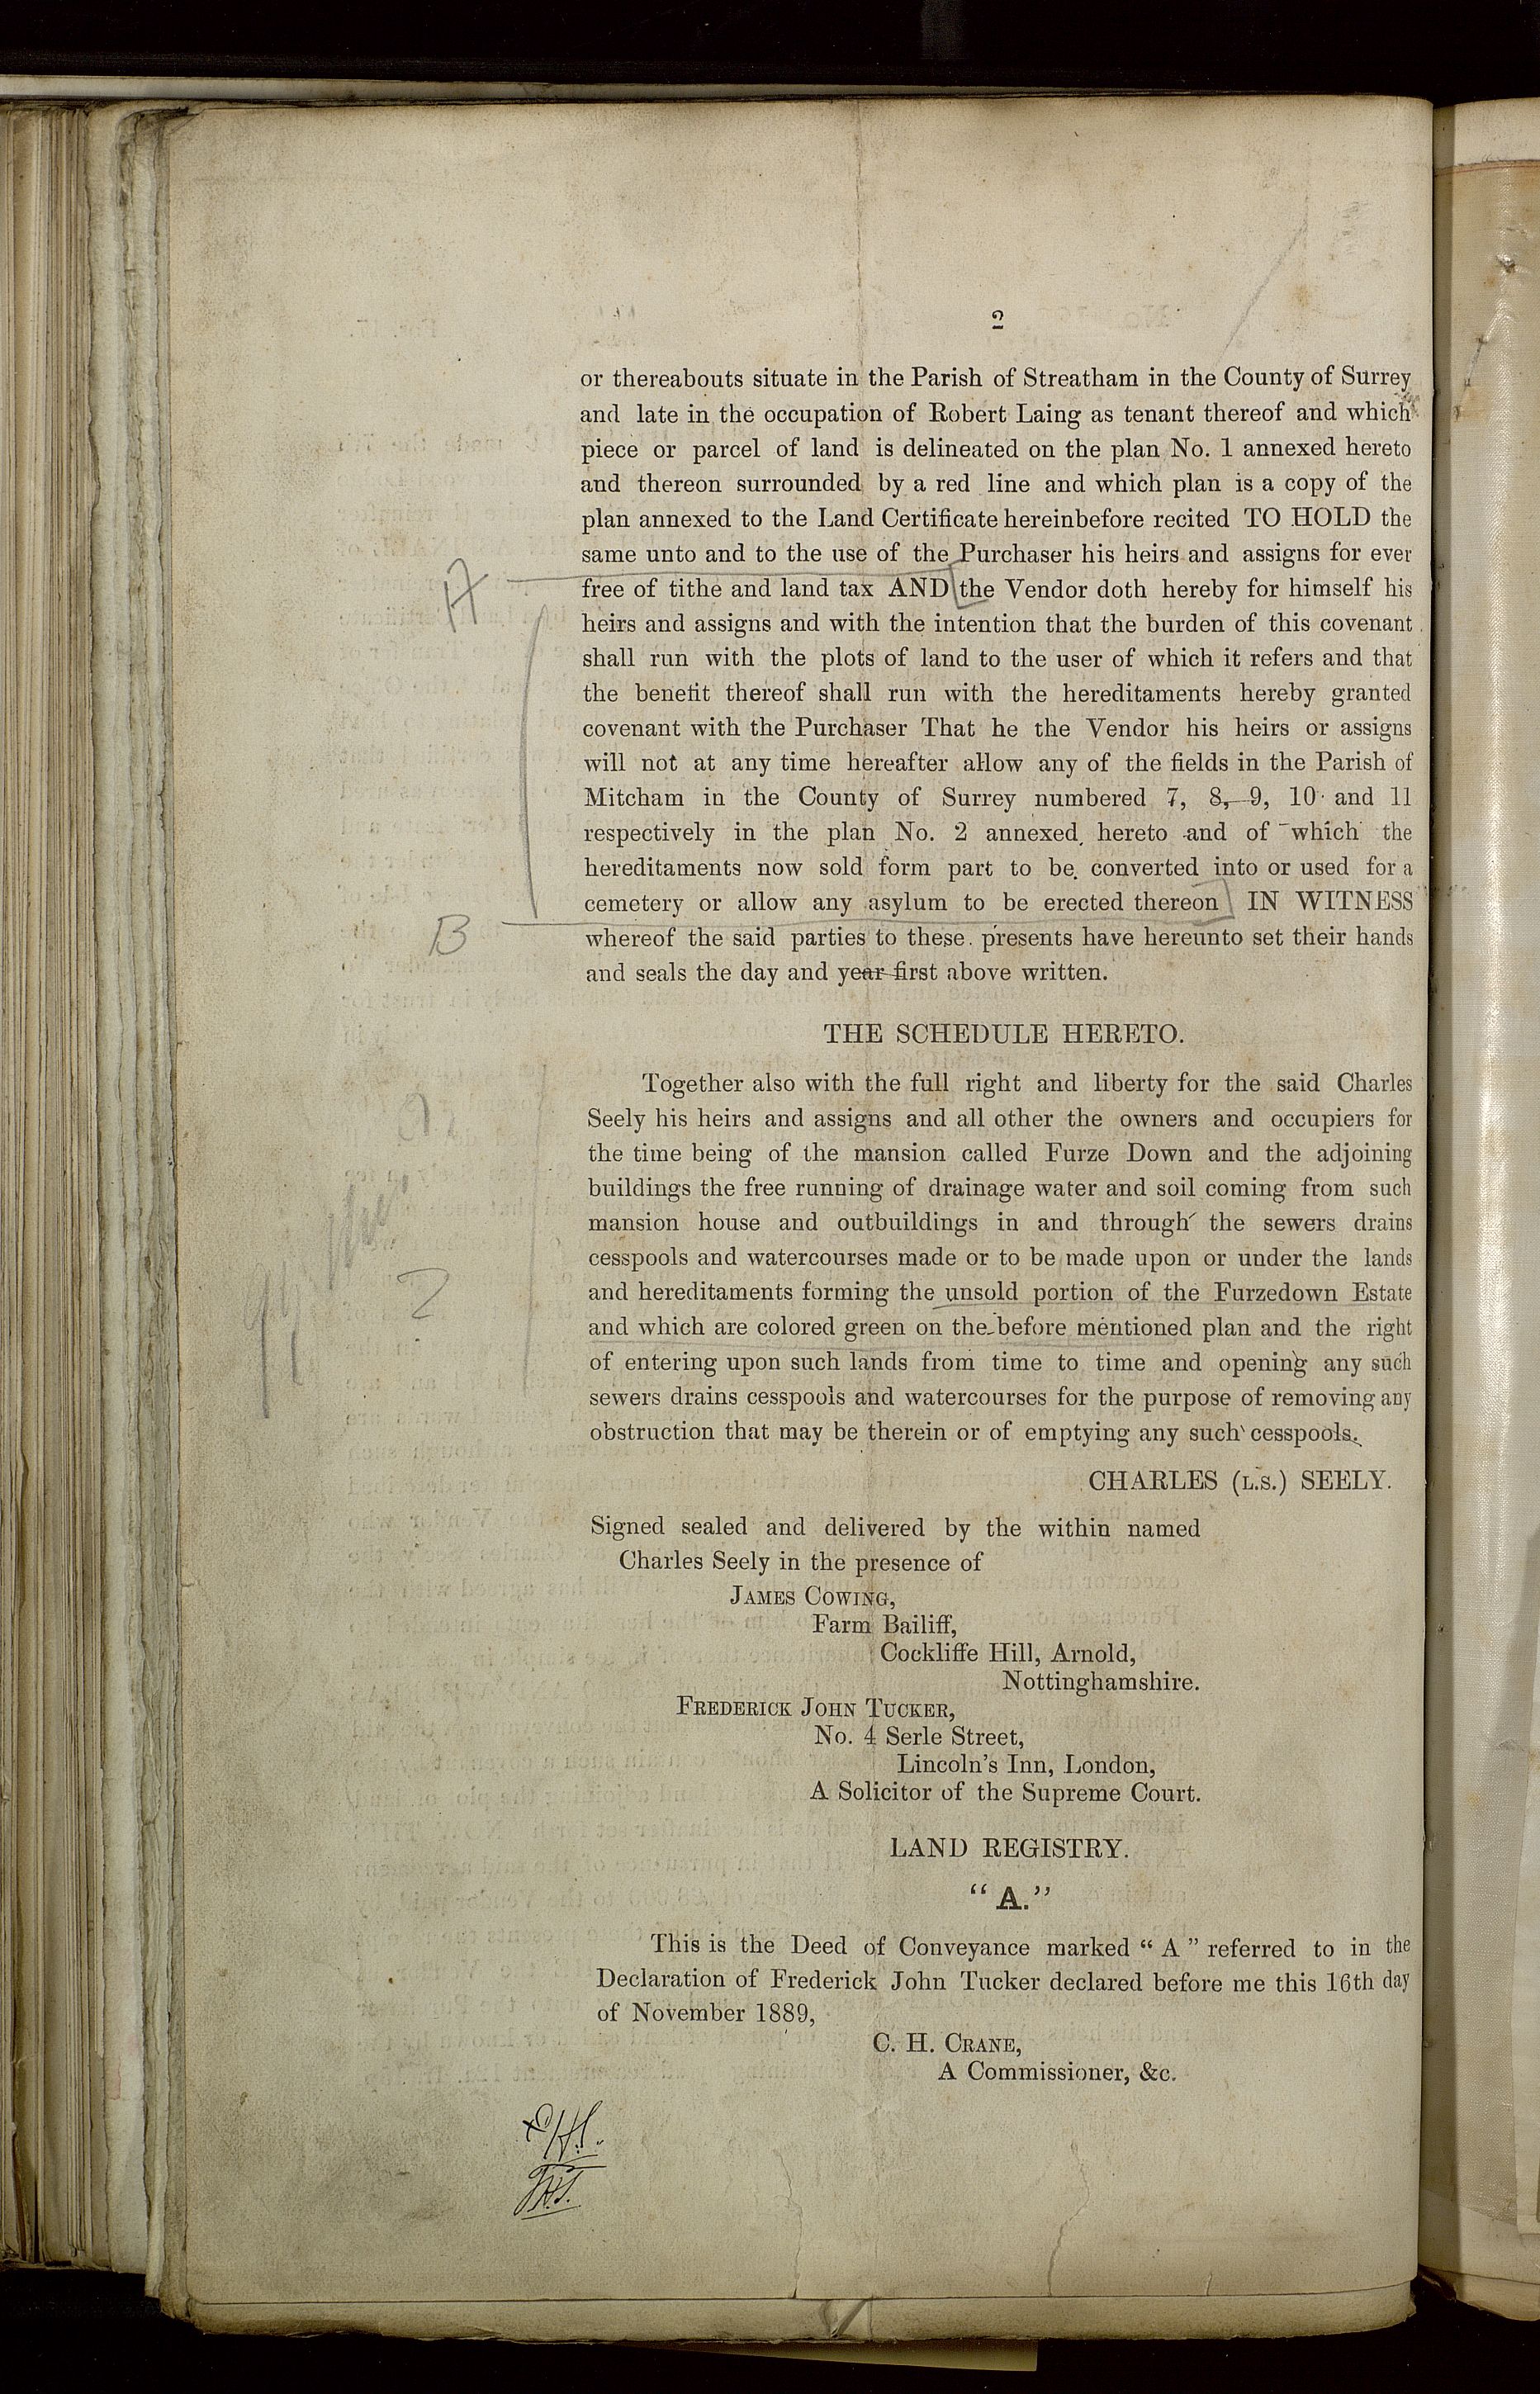 2
or thereabouts situate in the Parish of Streatham in the County of Surrey
and late in the occupation of Robert Laing as tenant thereof and which
piece or parcel of land is delineated on the plan No. 1 annexed hereto
and thereon surrounded by a red line and which plan is a copy of the
plan annexed to the Land Certificate hereinbefore recited TO HOLD the
same unto and to the use of the Purchaser his heirs and assigns for ever
A
free of tithe and land tax AND the Vendor doth hereby for himself his
heirs and assigns and with the intention that the burden of this covenant
shall run with the plots of land to the user of which it refers and that
the benefit thereof shall run with the hereditaments hereby granted
covenant with the Purchaser That he the Vendor his heirs or assigns
will not at any time hereafter allow any of the fields in the Parish of
Mitcham in the County of Surrey numbered 7, 8, 9, 10 and 11
respectively in the plan No. 2 annexed hereto and of which the
hereditaments now sold form part to be converted into or used for a
cemetery or allow any asylum to be erected thereon IN WITNESS
B
whereof the said parties to these presents have hereunto set their hands
and seals the day and year first above written.
THE SCHEDULE HERETO.
Together also with the full right and liberty for the said Charles
Seely his heirs and assigns and all other the owners and occupiers for
the time being of the mansion called Furze Down and the adjoining
buildings the free running of drainage water and soil coming from such
mansion house and outbuildings in and through the sewers drains
cesspools and watercourses made or to be made upon or under the lands
and hereditaments forming the unsold portion of the Furzedown Estate
?
and which are colored green on the before mentioned plan and the right
of entering upon such lands from time to time and opening any such
sewers drains cesspools and watercourses for the purpose of removing any
obstruction that may be therein or of emptying any such cesspools.
CHARLES (L.S.) SEELY.
Signed sealed and delivered by the within named
Charles Seely in the presence of
JAMES COWING,
Farm Bailiff,
Cockliffe Hill, Arnold,
Nottinghamshire.
FREDERICK JOHN TUCKER,
No. 4 Serle Street,
Lincoln's Inn, London,
A Solicitor of the Supreme Court.
LAND REGISTRY.
"A."
This is the Deed of Conveyance marked "A" referred to in the
Declaration of Frederick John Tucker declared before me this 16th day
of November 1889,
C. H. CRANE,
A Commissioner, &c.